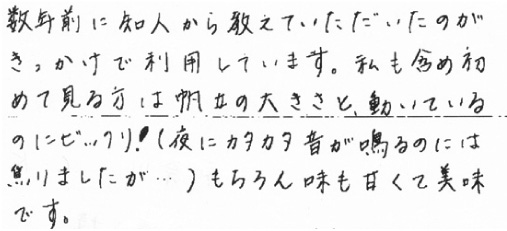 数年前に知人から教えていただいたのが
きっかけで利用しています。私も含め初
めて見る方は帆立の大きさと、動いている
のにビックリ!(夜にカタカタ音が鳴るのには
焦りましたが…)もちろん味も甘くて美味
です。